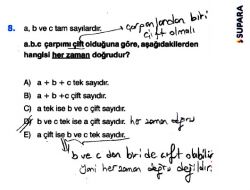 8. a, b ve c tam sayılardır.
çarpanlardan biri
çift olmalı
SUPARA
a.b.c çarpımı çift olduğuna göre, aşağıdakilerden
hangisi her zaman doğrudur?
A) a + b + c tek sayıdır.
B) a + b +c çift sayıdır.
C) a tek ise b ve c çift sayıdır.
D) b ve c tek ise a çift sayıdır. her zaman doğru
E) a çift ise b ve c tek sayıdır.
b ve c den biri de çift olabilir
yani her zaman doğru değildir.